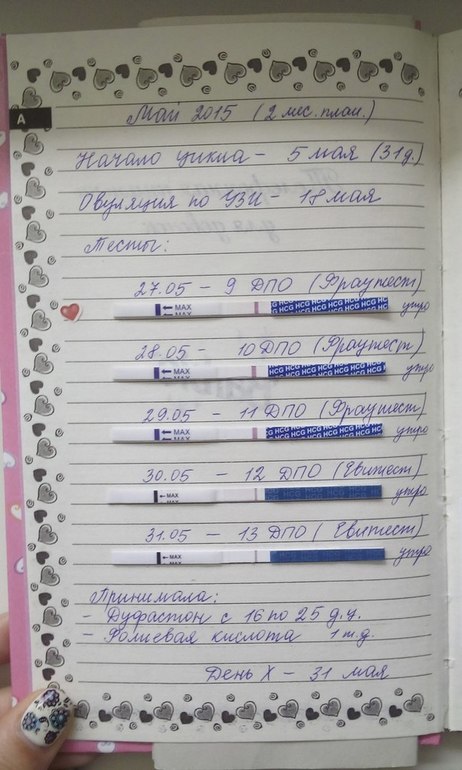 A
Май 2015 (2 мес. план.)
Начало цикла - 5 мая (31 д.)
Овуляция по УЗИ - 18 мая
Тесты:
27.05 - 9 ДПО (Фраутест)
← MAX HCG HCG HCG HCG HCG HCG утро
28.05 - 10 ДПО (Фраутест)
← MAX HCG HCG HCG HCG HCG HCG утро
29.05 - 11 ДПО (Фраутест)
← MAX HCG HCG HCG HCG HCG HC утро
30.05 - 12 ДПО (Эвитест)
← MAX утро
31.05 - 13 ДПО (Эвитест)
← MAX утро
Принимала:
- Дуфастон с 16 по 25 д.ц.
- Фолиевая кислота 1 т.д.
День X - 31 мая